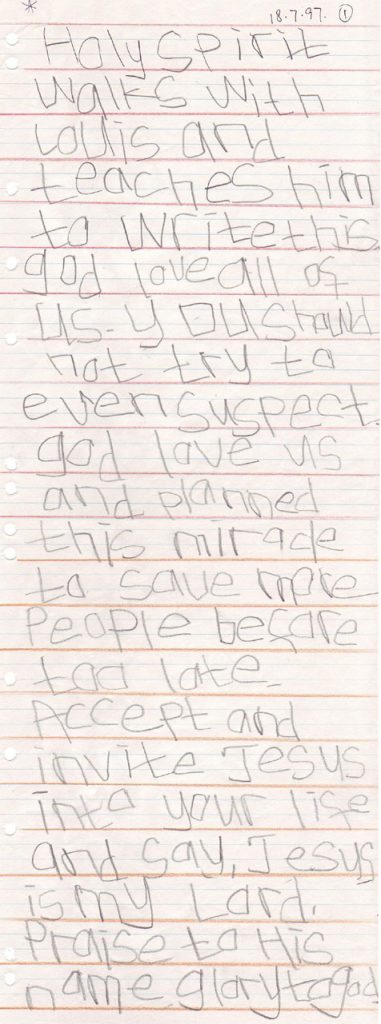 * 18.7.97. ①
Holy spirit
walks with
Louis and
teaches him
to write this
god love all of
us. you should
not try to
even suspect.
god love us
and planned
this miracle
to save more
People before
too late.
Accept and
invite Jesus
into your life
and say, Jesus
is my Lord.
Praise to His
name glory to god